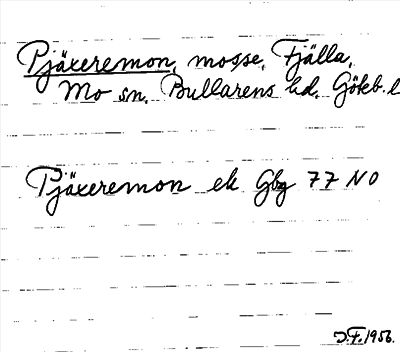 Pjäxeremon, mosse, Fjälla,
Mo sn, Bullarens hd. Götéb. l
Pjäxeremon ek Gbg 77 NO
J.F. 1956.